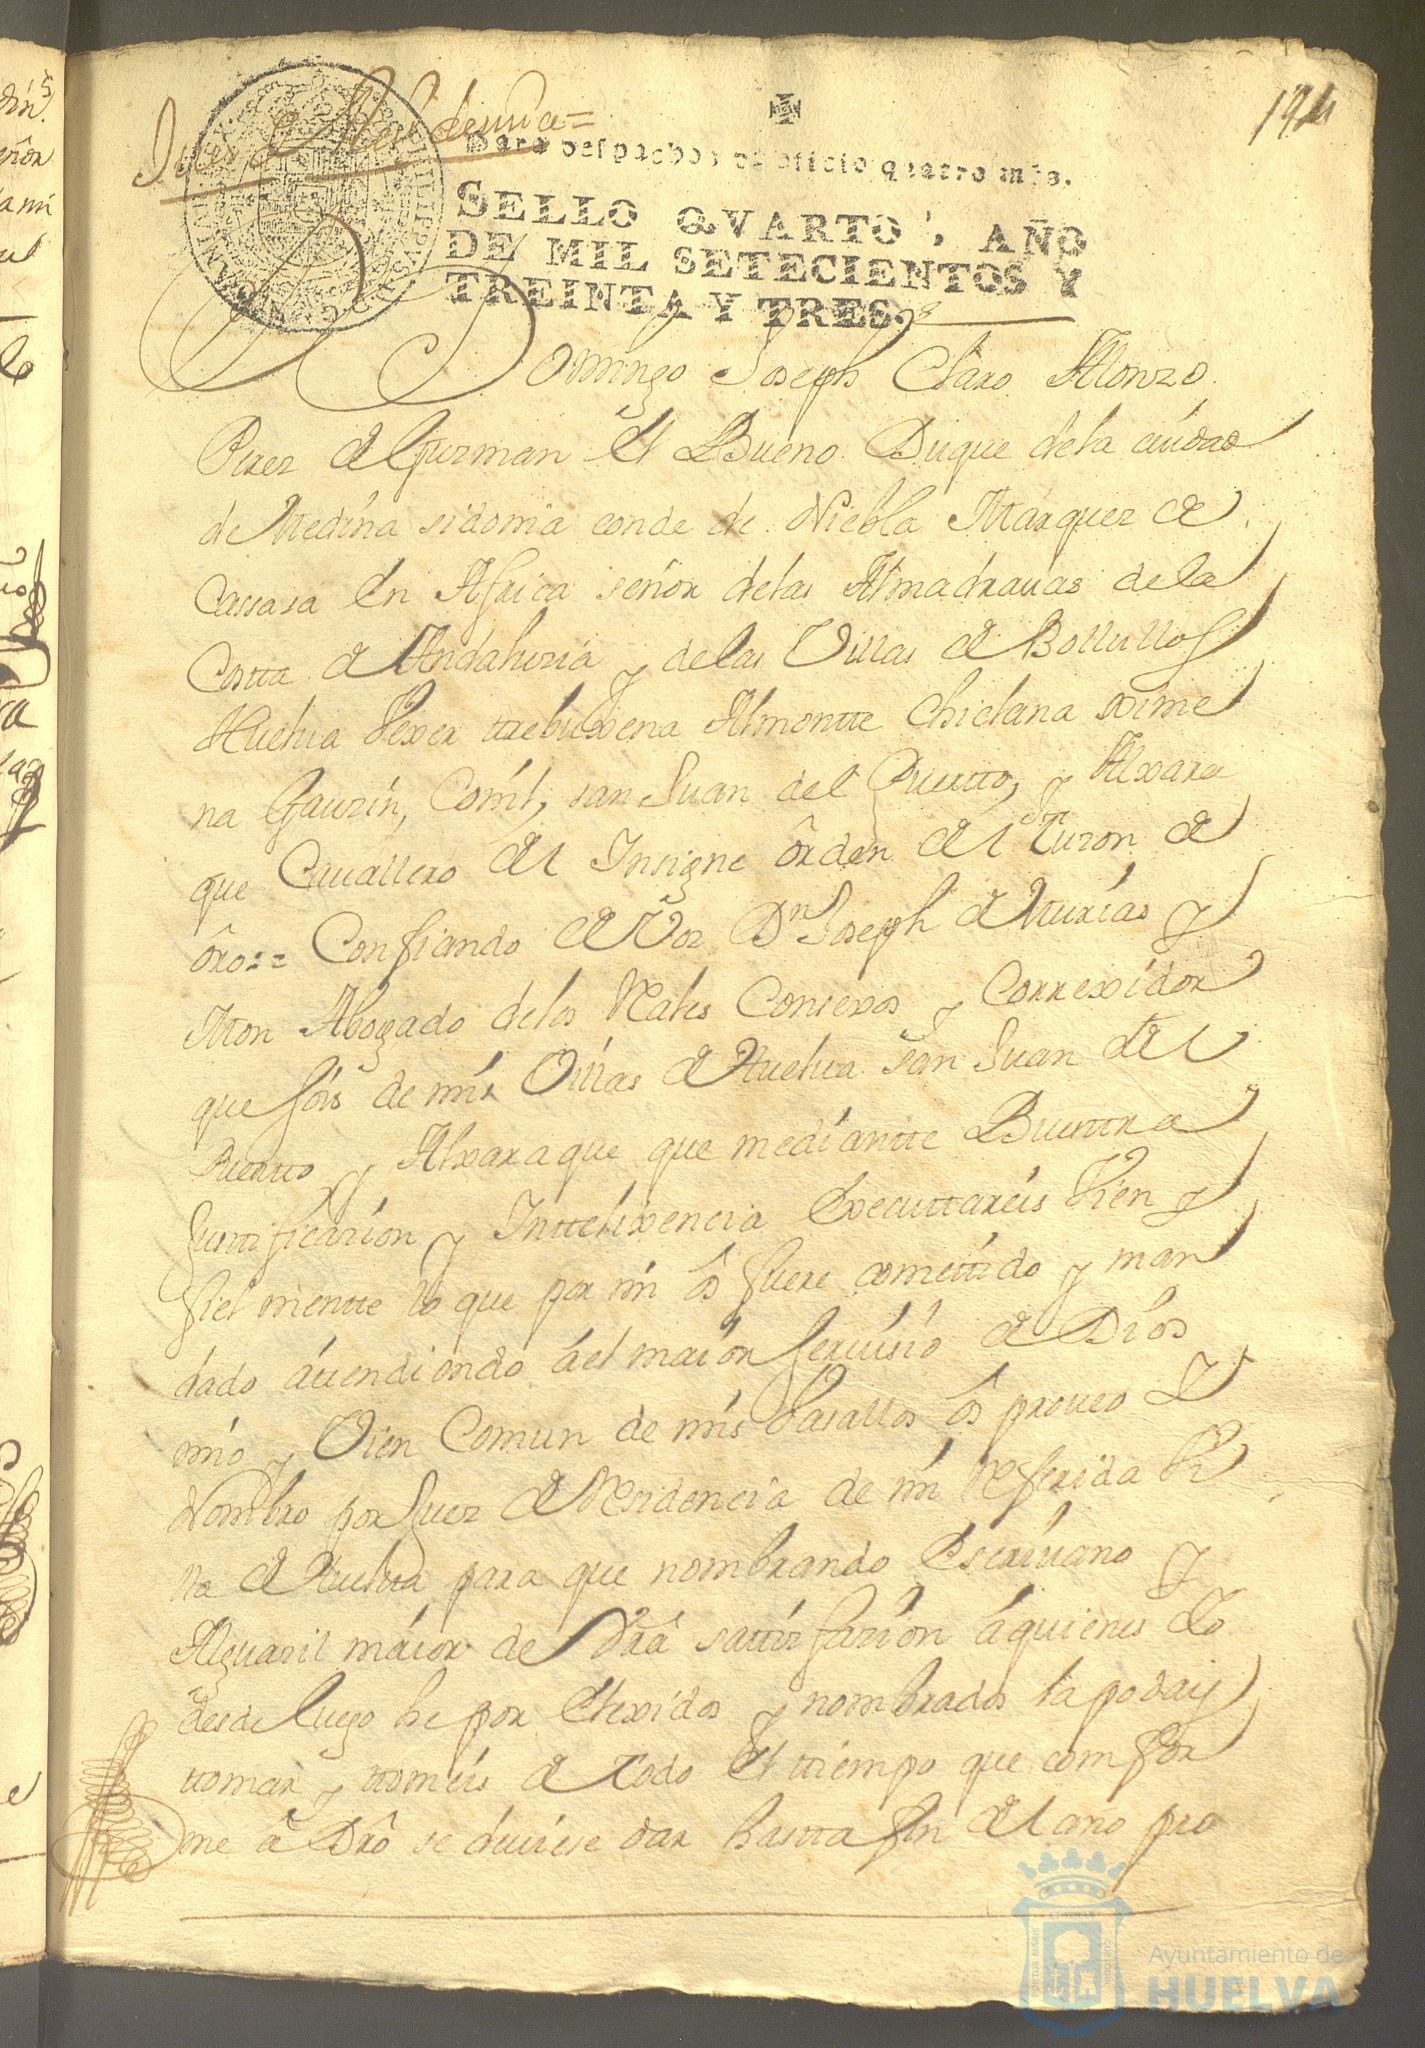 194
Para despachos de oficio quatro mrs.
SELLO QVARTO, AÑO
DE MIL SETECIENTOS Y
TREINTA Y TRES.
Domingo Joseph Claro Alonzo
Perez de Guzman el Bueno Duque de la ciudad
de Medina sidonia conde de Niebla Marquez de
Cassasa en Africa señor de las Almadrauas de la
Costta de Andaluzia y de las Villas de Bollullos
Huelua Vexer ttrebuxena Almontte Chiclana xime
na Gauzin, Conil, san Juan del Puertto, y Alxara
que Cauallero del Insigne ôrden del tuzon de
ôro:= Confiando de Vos Dn Joseph de Asturias y
Mon Abogado de los Rales Consexos y Correxidor
que sois de mis Villas de Huelua san Juan del
Puertto y Alxaraque que mediantte Buestra
Justtificazion y Inttelixencia Executtareis bien y
fielmentte lo que por mi ôs fuere comettido y man
dado attendiendo âel maior seruisio de Dios
mio y Vien Comun de mis Vasallos ôs proueo y
Nombro por Juez de Residencia de mi Referida Vi
lla de Huelua para que nombrando Escriuano y
Alguazil maior de Vrâ sattisfazion âquienes Yo
desde luego he por Elexidos y nombrados la podais
ttomar y ttomeis de todo el ttiempo que comfor
me â Drô se deuiese dar hastta fin del año pro
Ayuntamiento de
HUELVA